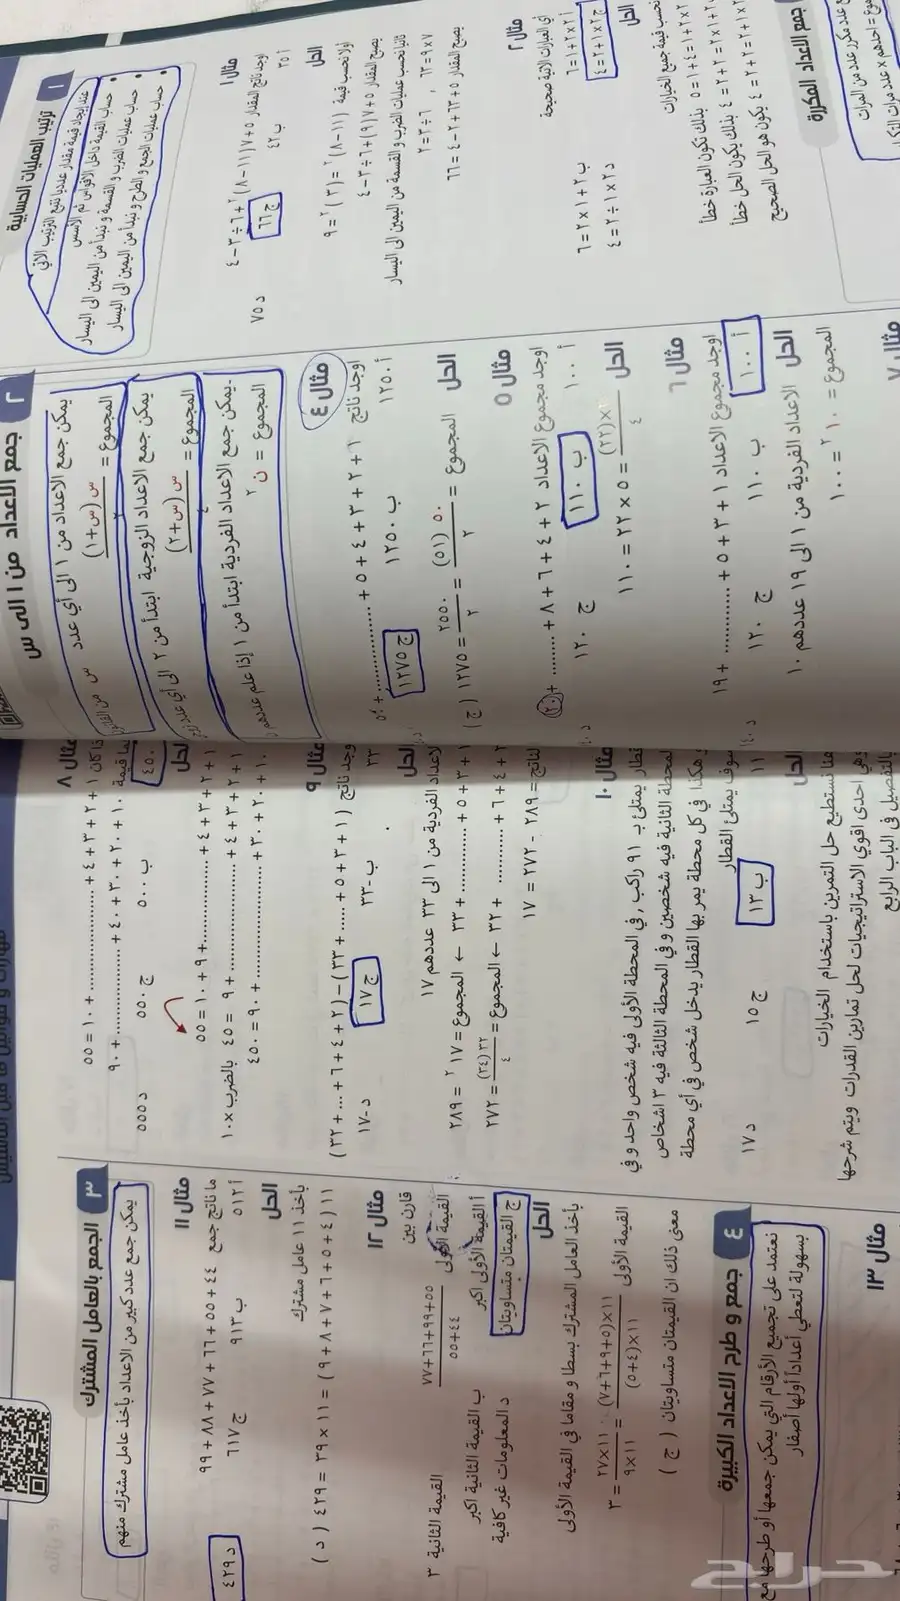 ١ ترتيب العمليات الحسابية
عند ايجاد قيمة مقدار عددي نتبع الترتيب الاتي
• حساب القيمة داخل الاقواس ثم الأسس
• حساب عمليات الضرب و القسمة و نبدأ من اليمين الى اليسار
• حساب عمليات الجمع و الطرح و نبدأ من اليمين الى اليسار
مثال ١
اوجد ناتج المقدار ٥+٧(١١-٨)٢+٦÷٣-٤
أ ٣٥
ب ٤٢
ج ٦٦
د ٧٥
الحل
اولا نحسب قيمة (١١-٨)٢ = (٣)٢ = ٩
يصبح المقدار ٥+٧(٩)+٦÷٣-٤
ثانيا نحسب عمليات الضرب و القسمة من اليمين الى اليسار
٧×٩=٦٣ , ٦÷٣=٢
يصبح المقدار ٥+٦٣+٢-٤=٦٦
مثال ٢
أي العبارات الاتية صحيحة
أ ٢×٢+١=٦
ب ٢+١×٢=٦
ج ٢×١+٢=٤
د ٢×١÷٢=٤
الحل
نحسب قيمة جميع الخيارات
٢×٢+١=٥ بذلك تكون العبارة خطأ
٢+١×٢=٤ بذلك يكون الحل خطأ
٢×١+٢=٢+٢=٤ يكون هو الحل الصحيح
جمع الاعداد المكررة
عدد مكرر عدد من المرات
= احدهم × عدد مرات
٢ جمع الاعداد من ١ الى س
يمكن جمع الاعداد من ١ الى أي عدد س من القانون
المجموع = س (س+١) / ٢
يمكن جمع الاعداد الزوجية ابتدأ من ٢ الى أي عدد
المجموع = س (س+٢) / ٤
يمكن جمع الاعداد الفردية ابتدأ من ١ إذا علم عددهم
المجموع = ن ٢
مثال ٤
اوجد ناتج ١+٢+٣+٤+٥+ ............ +٥٠
أ ١٢٥٠
ب ١٢٥٠
ج ١٢٧٥
الحل
المجموع = ٥٠ (٥١) / ٢ = ٢٥٥٠ / ٢ = ١٢٧٥ ( ج )
مثال ٥
اوجد مجموع الاعداد ٢+٤+٦+٨+ ........ +٢٠
أ ١٠٠
ب ١١٠
ج ١٢٠
الحل
(٢٢)× / ٤ = ٥ × ٢٢ = ١١٠
مثال ٦
اوجد مجموع الاعداد ١+٣+٥+ ............ +١٩
أ ١٠٠
ب ١١٠
ج ١٢٠
د ١٤٠
الحل
الاعداد الفردية من ١ الى ١٩ عددهم ١٠
المجموع = ١٠ ٢ = ١٠٠
مثال ٧
مثال ٨
١+٢+٣+٤+ ............ +١٠=٥٥
قيمة ١٠+٢٠+٣٠+٤٠+ ............ +٩٠
٤٥٠
ب ٥٠٠
ج ٥٥٠
د ٥٥٥
الحل
١+٢+٣+٤+ ............ +٩+١٠=٥٥
١+٢+٣+٤+ ............ +٩=٤٥ بالضرب×١٠
١٠+٢٠+٣٠+ ............ +٩٠=٤٥٠
مثال ٩
وجد ناتج (١+٣+٥+ ..... +٣٣)-(٢+٤+٦+ ... +٣٢)
٣٣
ب -٣٣
ج ١٧
د -١٧
الحل
لاعداد الفردية من ١ الى ٣٣ عددهم ١٧
١+٣+٥+ ............ +٣٣ ← المجموع= ١٧ ٢ = ٢٨٩
٢+٤+٦+ ............ +٣٢ ← المجموع = ٣٢ (٣٤) / ٤ = ٢٧٢
لناتج= ٢٨٩ - ٢٧٢ = ١٧
مثال ١٠
قطار يمتلئ بـ ٩١ راكب , في المحطة الأولى فيه شخص واحد و في
لمحطة الثانية فيه شخصين و في المحطة الثالثة فيه ٣ اشخاص
و هكذا في كل محطة يمر بها القطار يدخل شخص في أي محطة
سوف يمتلئ القطار
١١
ب ١٣
ج ١٥
د ١٧
الحل
هنا نستطيع حل التمرين باستخدام الخيارات
وهي احدى اقوي الاستراتيجيات لحل تمارين القدرات ويتم شرحها
بالتفصيل في الباب الرابع
٣ الجمع بالعامل المشترك
يمكن جمع عدد كبير من الاعداد بأخذ عامل مشترك منهم
مثال ١١
ما ناتج جمع ٤٤+٥٥+٦٦+٧٧+٨٨+٩٩
أ ٥١٢
ب ٩١٣
ج ٦١٧
د ٤٢٩
الحل
بأخذ ١١ عامل مشترك
١١(٤+٥+٦+٧+٨+٩) = ١١×٣٩ = ٤٢٩ ( د )
مثال ١٢
قارن بين
القيمة الأولى ٥٥+٩٩+٦٦+٧٧ / ٤٤+٥٥
القيمة الثانية ٣
أ القيمة الأولى اكبر
ب القيمة الثانية اكبر
ج القيمتان متساويتان
د المعلومات غير كافية
الحل
بأخذ العامل المشترك بسطا و مقاما في القيمة الأولى
القيمة الأولى ١١×(٥+٩+٦+٧) / ١١×(٤+٥) = ١١×٢٧ / ١١×٩ = ٣
معنى ذلك ان القيمتان متساويتان ( ج )
٤ جمع و طرح الاعداد الكبيرة
نعتمد على تجميع الأرقام التي يمكن جمعها أو طرحها مع
بسهولة لتعطي أعداداً أولها أصفار
مثال ١٣
حراج